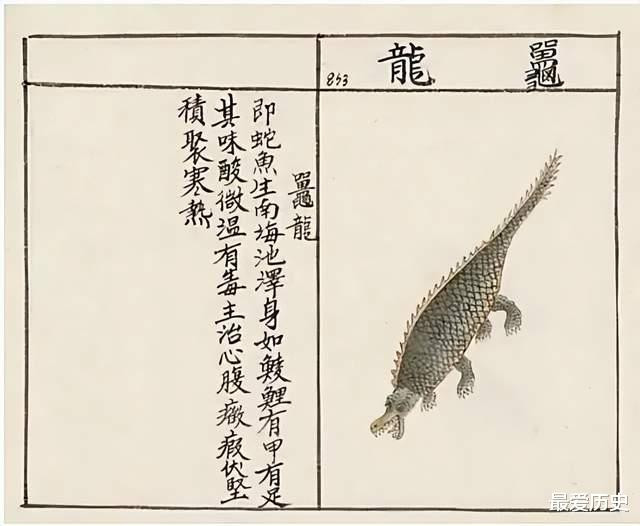 鼉龍
853
鼉龍
即蛇魚生南海池澤身如鯪鯉有甲有足
其味酸微温有毒主治心腹癥瘕伏堅
積聚寒熱
最爱历史